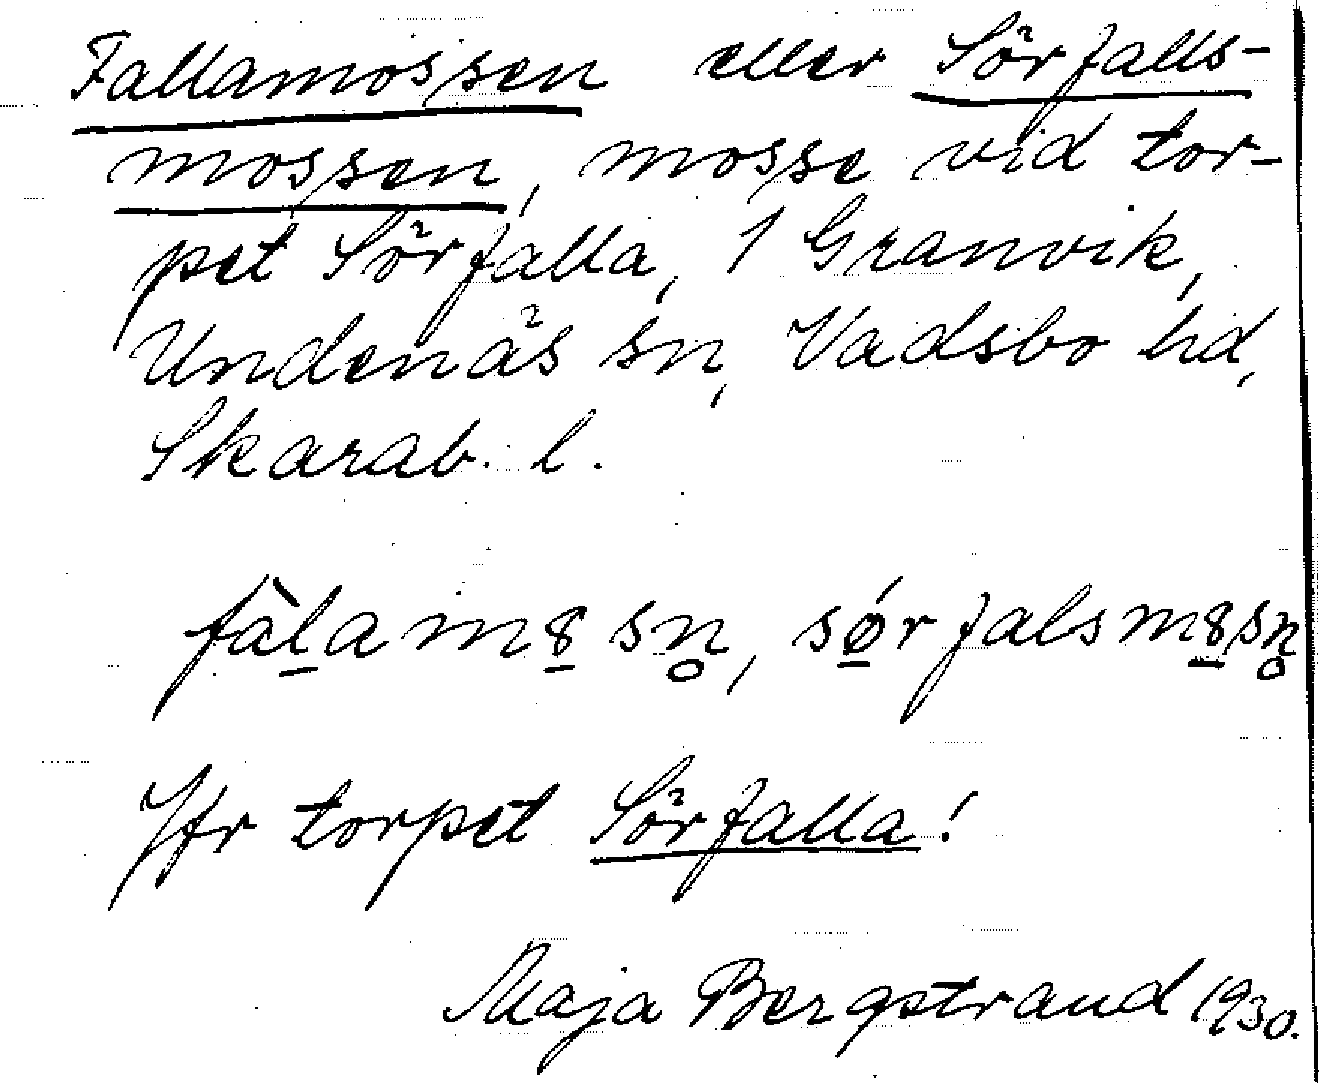 Fallamossen eller Sörfalls-
mossen, mosse vid tor-
pet Sörfalla, 1 Granvik,
Undenäs sn, Vadsbo hd,
Skarab. l.
fàl̲am8̲sn̥, sǿ̲rfalsm8̲sn̥
Jfr torpet Sörfalla!
Maja Bergstrand 1930.